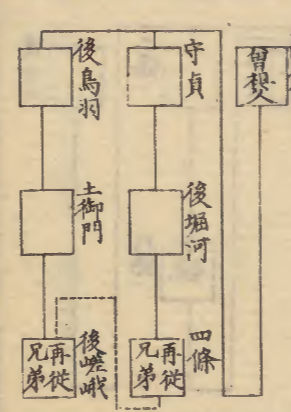 曾祖父
守貞
後堀河
四條
再從
兄弟
後鳥羽
土御門
後嵯峨
再從
兄弟